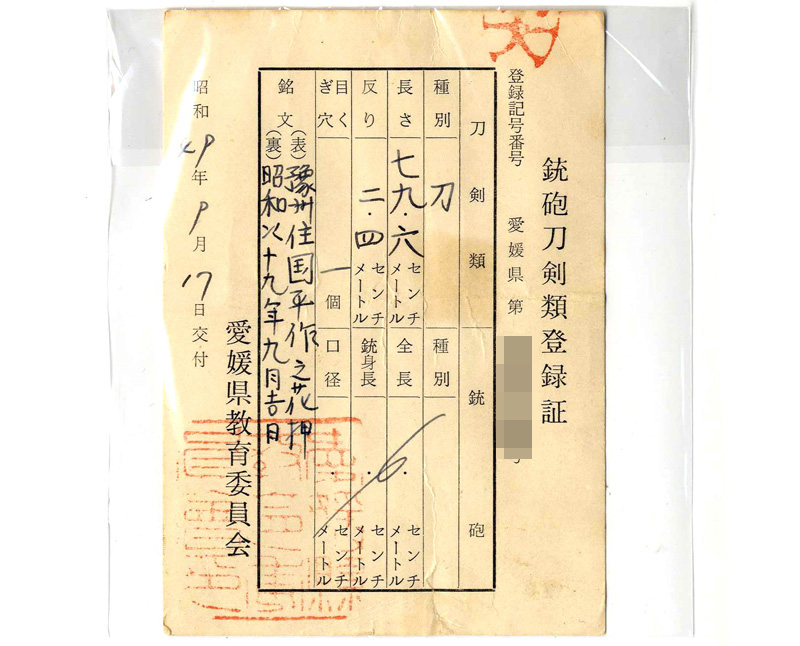 銃砲刀剣類登録証
登録記号番号 愛媛県第 号
刀剣類 銃砲
種別 刀 種別
長さ 七九・六 センチメートル 全長 ・ センチメートル
反り 二・四 センチメートル 銃身長 ・ センチメートル
目くぎ穴 一個 口径 ・ センチメートル
銘文 (表) 豫州住国平作之花押
(裏) 昭和四十九年九月吉日
昭和49年9月17日交付
愛媛県教育委員会